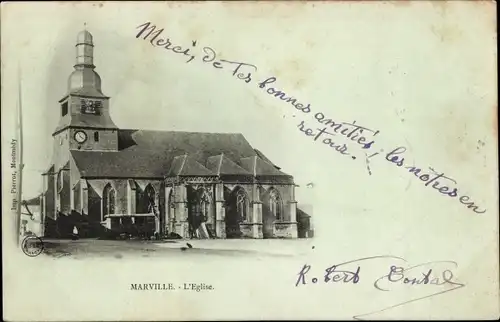 Merci, de tes bonnes amitiés! les nôtres en
retour.
Imp. Pierrot, Montmédy
MARVILLE. - L'Eglise.
Robert